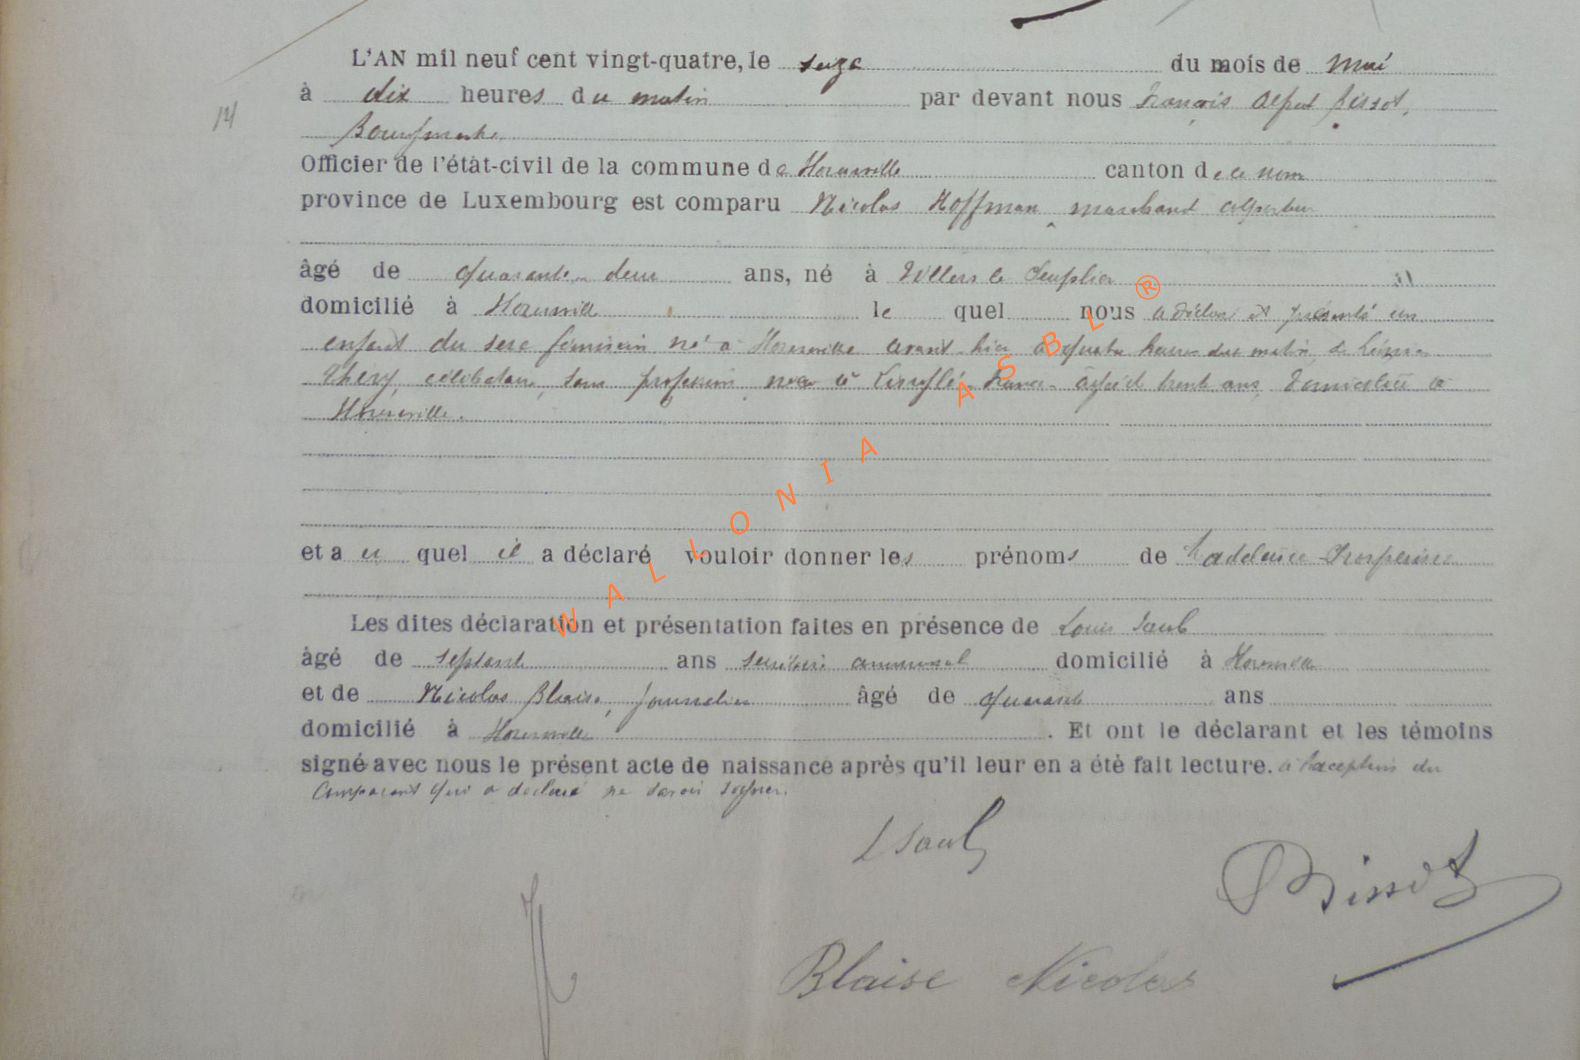 L'AN mil neuf cent vingt-quatre, le seize du mois de mai
14
à dix heures du matin par devant nous François Bissot,
Bourgmestre
Officier de l'état-civil de la commune de canton de ce nom
province de Luxembourg est comparu Nicolas Hoffman marchand
âgé de quarante deux ans, né à Villers le
domicilié à le quel nous a déclaré et présenté un
enfant du sexe féminin né à avant-hier à quatre heures du matin, de
célibataire, sans profession née à France âgée de trente ans, domiciliée à
et a u quel il a déclaré vouloir donner les prénoms de
Les dites déclaration et présentation faites en présence de Louis
âgé de septante ans secrétaire communal domicilié à
et de Nicolas Blaise, journalier âgé de quarante ans
domicilié à . Et ont le déclarant et les témoins
signé avec nous le présent acte de naissance après qu'il leur en a été fait lecture. à l'exception du
comparant qui a déclaré ne savoir signer.
Bissot
Blaise Nicolas
WALLONIA ASBL ®